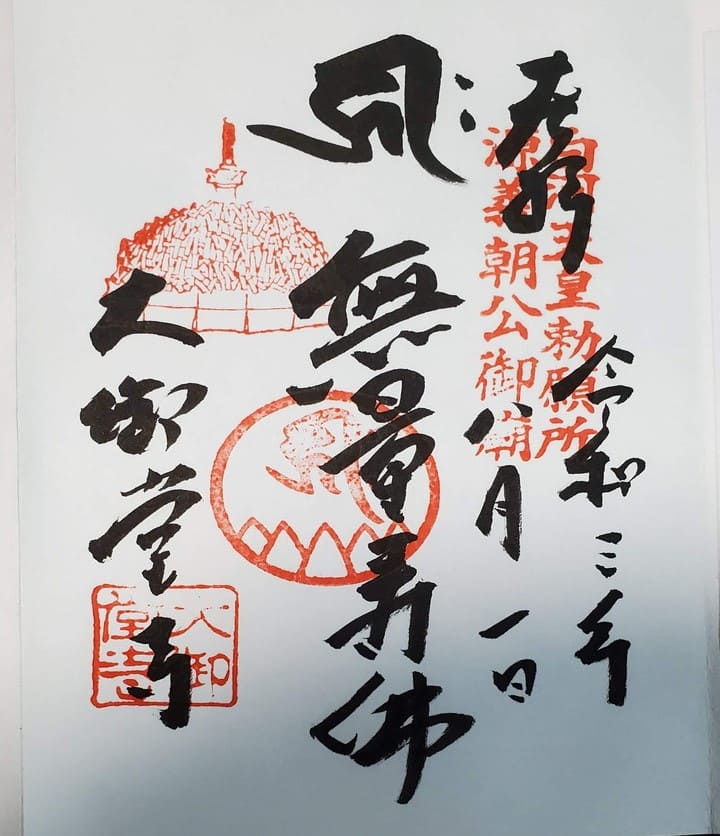 奉拝
白河天皇勅願所
源義朝公御廟
令和三年
八月一日
𑖮𑖿𑖨𑖱𑖾
無量寿佛
大御堂寺
大御
堂寺